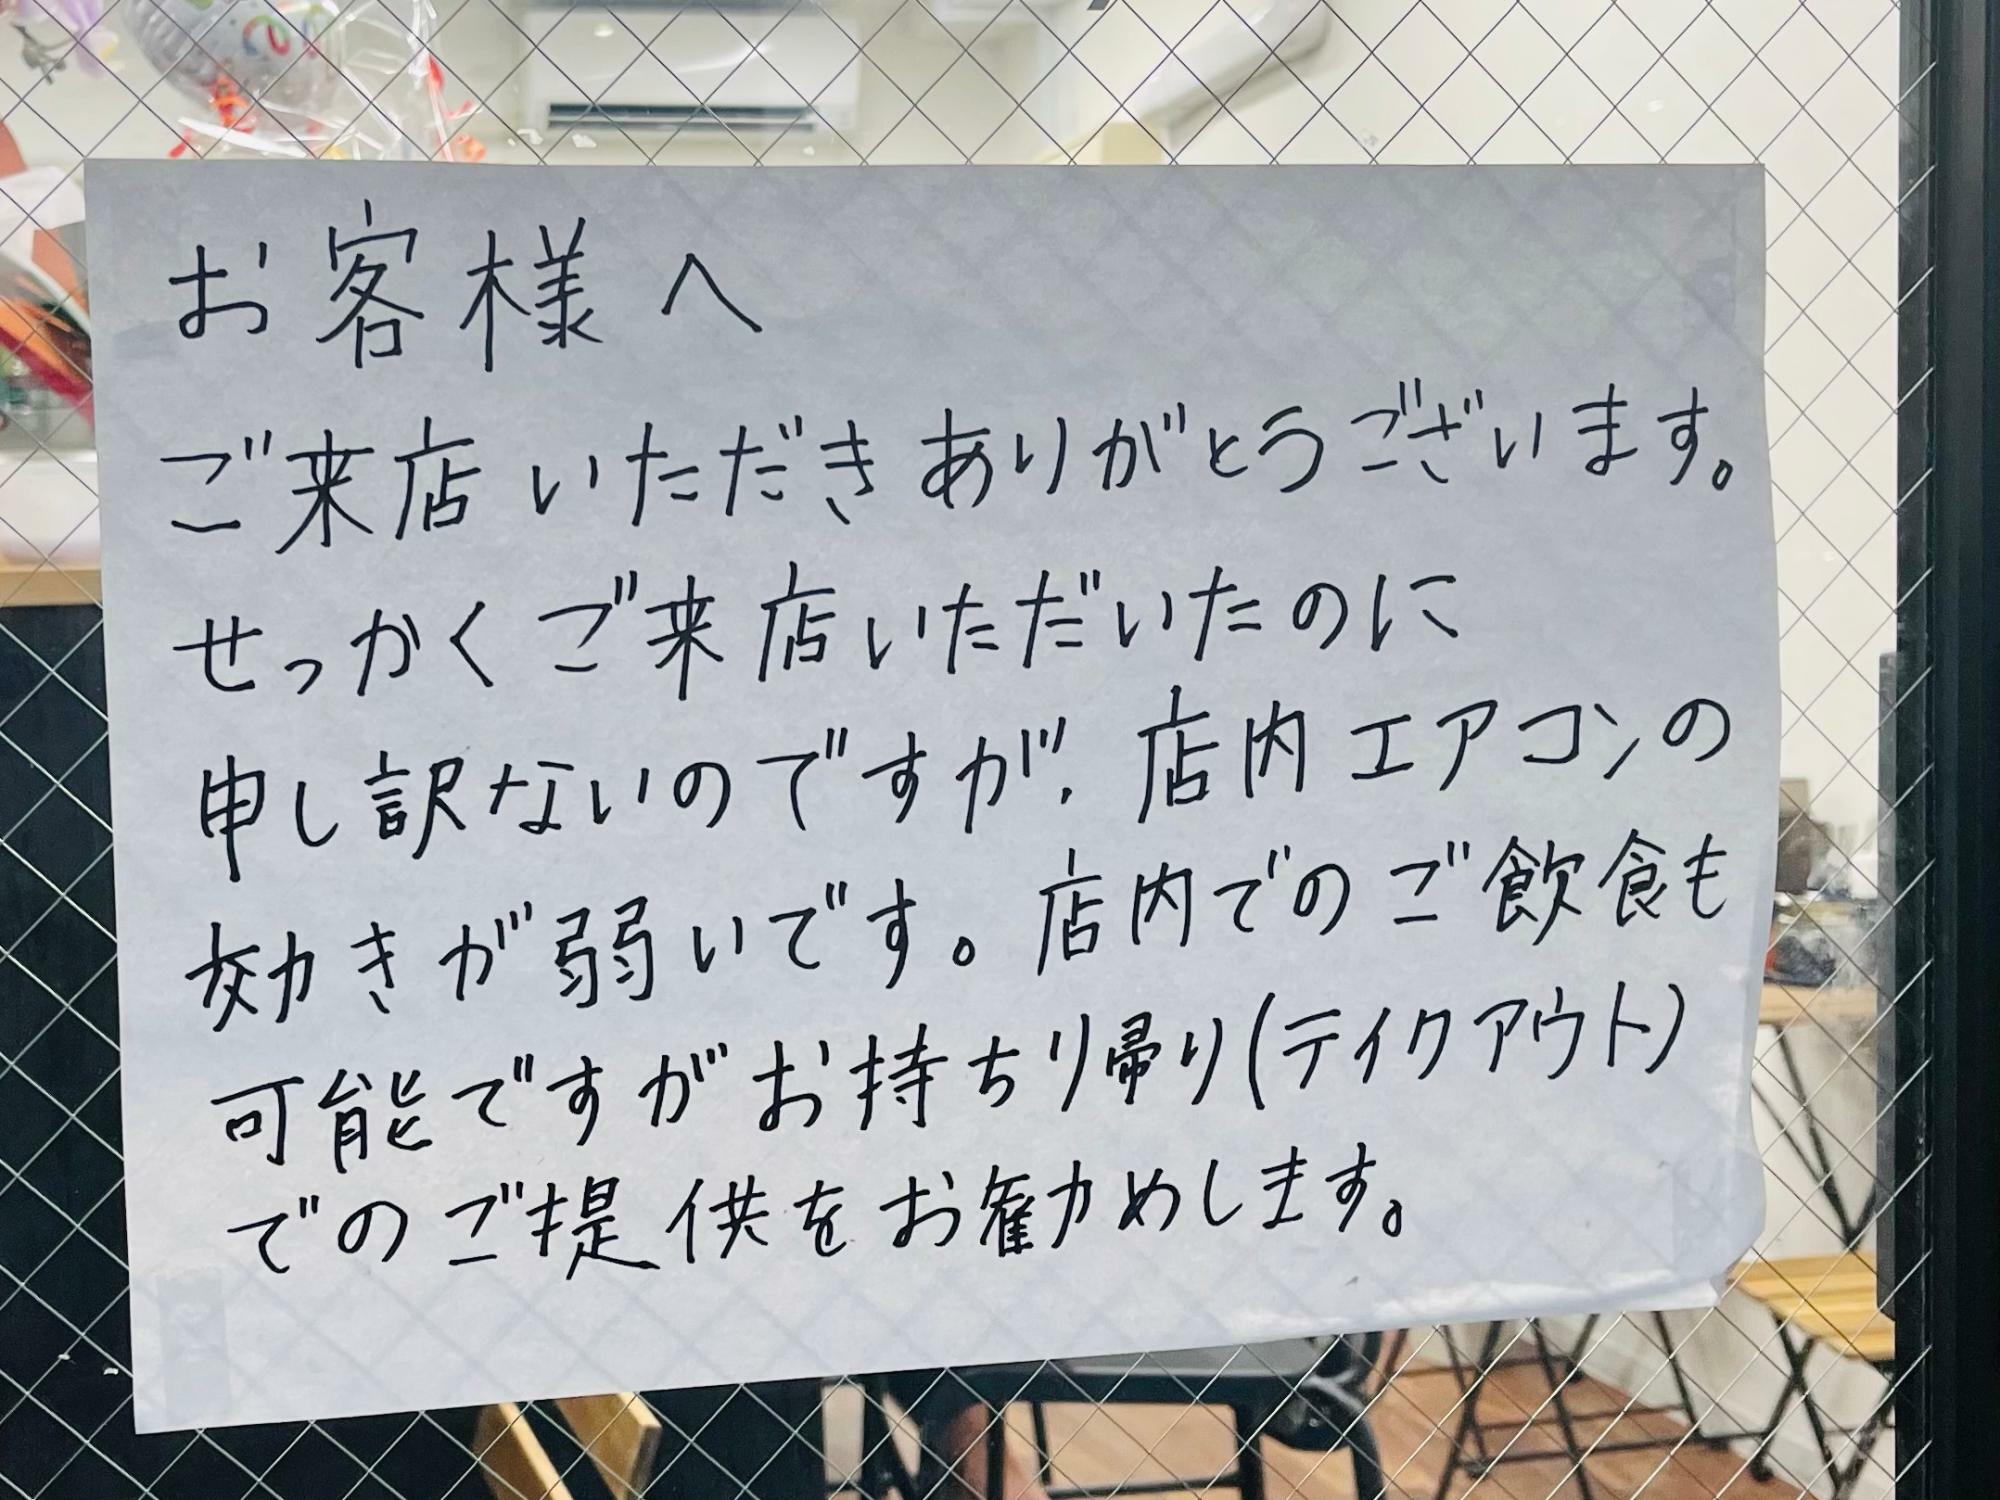 お客様へ
ご来店いただきありがとうございます。
せっかくご来店いただいたのに
申し訳ないのですが、店内エアコンの
効きが弱いです。店内でのご飲食も
可能ですがお持ち帰り(テイクアウト)
でのご提供をお勧めします。